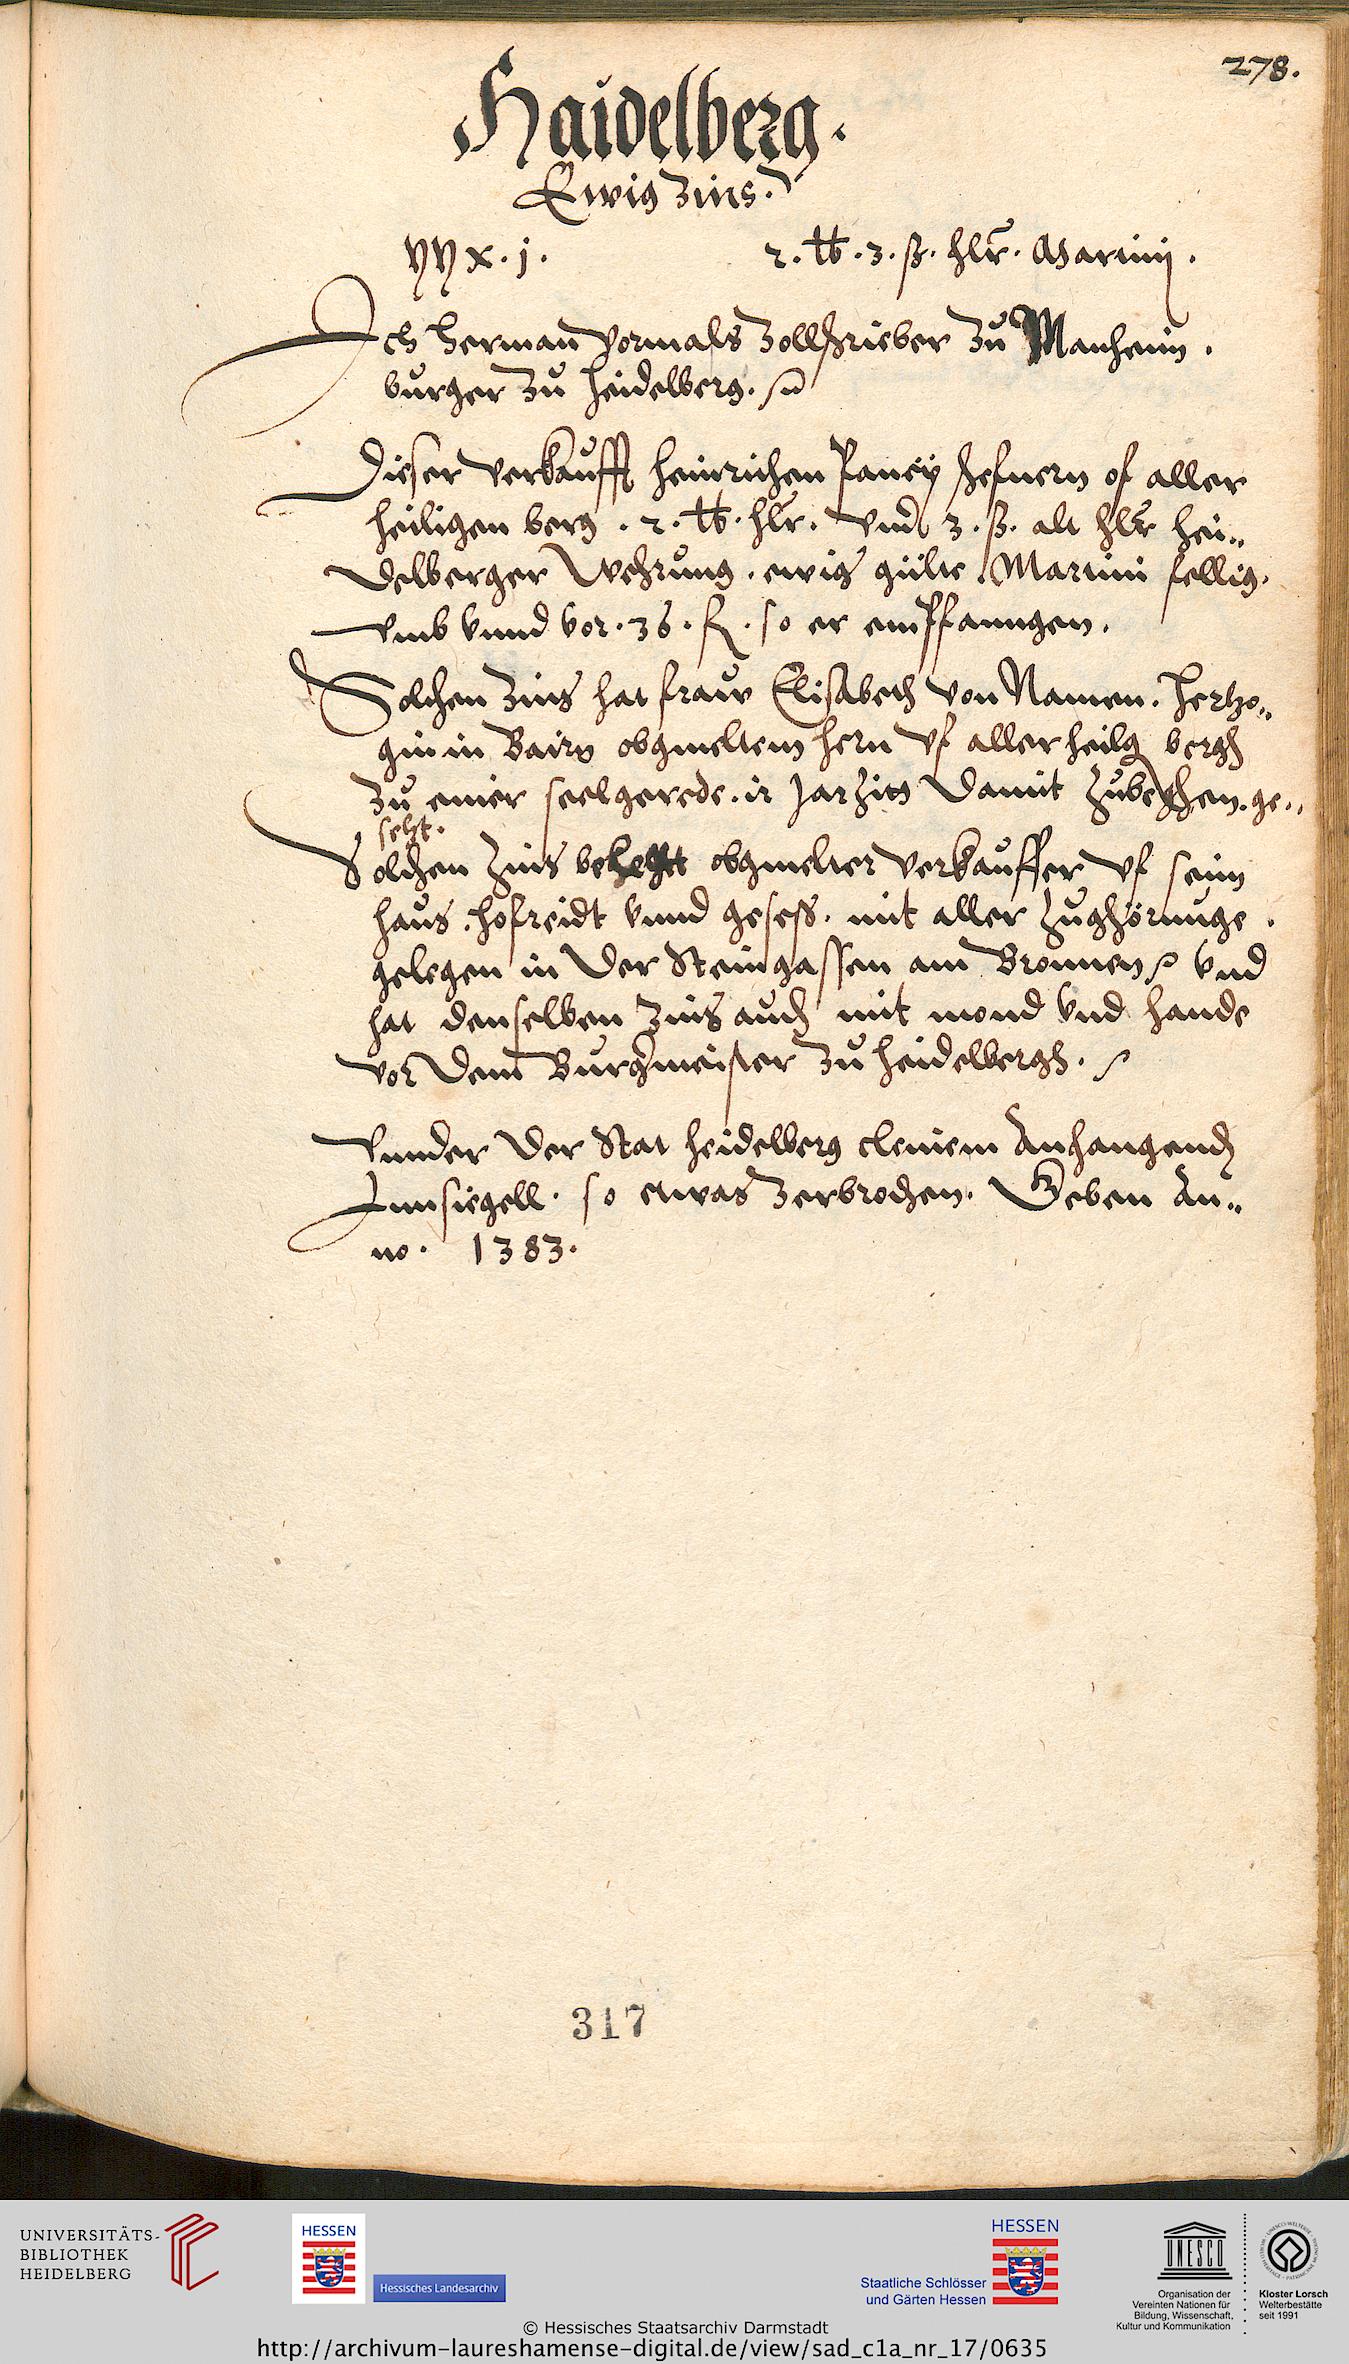 278.
Haidelberg.
Ewig Zins.
yy x. j. 2. lb. 3. ß. hlr. Martinj.
Ich Herman vormals Zollschrieber Zu Manheim.
burger Zu heidelberg.
Dieser verkaufft heinrichen hefnern of aller
heiligen berg. 2. lb. hlr. vnd 3. ß. alt hlr hei„
delberger Wehrung. ewig gülte Martini fellig.
vmb vnnd vor. 36. fl. so er empffanngen.
Solchen Zins hat fraw Elisabeth von Namen. Hertzo„
gin in Bairn obgmeltem hern vf allerheilg bergh
Zu einer seelgerede. ir Jarzitt damit Zubeghen. ge„
setzt.
Solchen Zins obgmelter verkauffer vf seim
haus. hofreidt vnnd gesess. mit aller Zughörunge.
gelegen in der Steingassen am Bronnen vnd
hat denselben Zins auch mit mond vnd hande
vor dem Burgmeister Zu heidelbergh.
Vnnder der Stat heidelberg cleinem Anhangend
Innsiegell. so etwas Zerbrochen. Geben An„
no. 1383.
317
UNIVERSITÄTS-
BIBLIOTHEK
HEIDELBERG
HESSEN
Hessisches Landesarchiv
HESSEN
Staatliche Schlösser
und Gärten Hessen
UNESCO
Organisation der
Vereinten Nationen für
Bildung, Wissenschaft,
Kultur und Kommunikation
Kloster Lorsch
Welterbestätte
seit 1991
© Hessisches Staatsarchiv Darmstadt
http://archivum-laureshamense-digital.de/view/sad_c1a_nr_17/0635